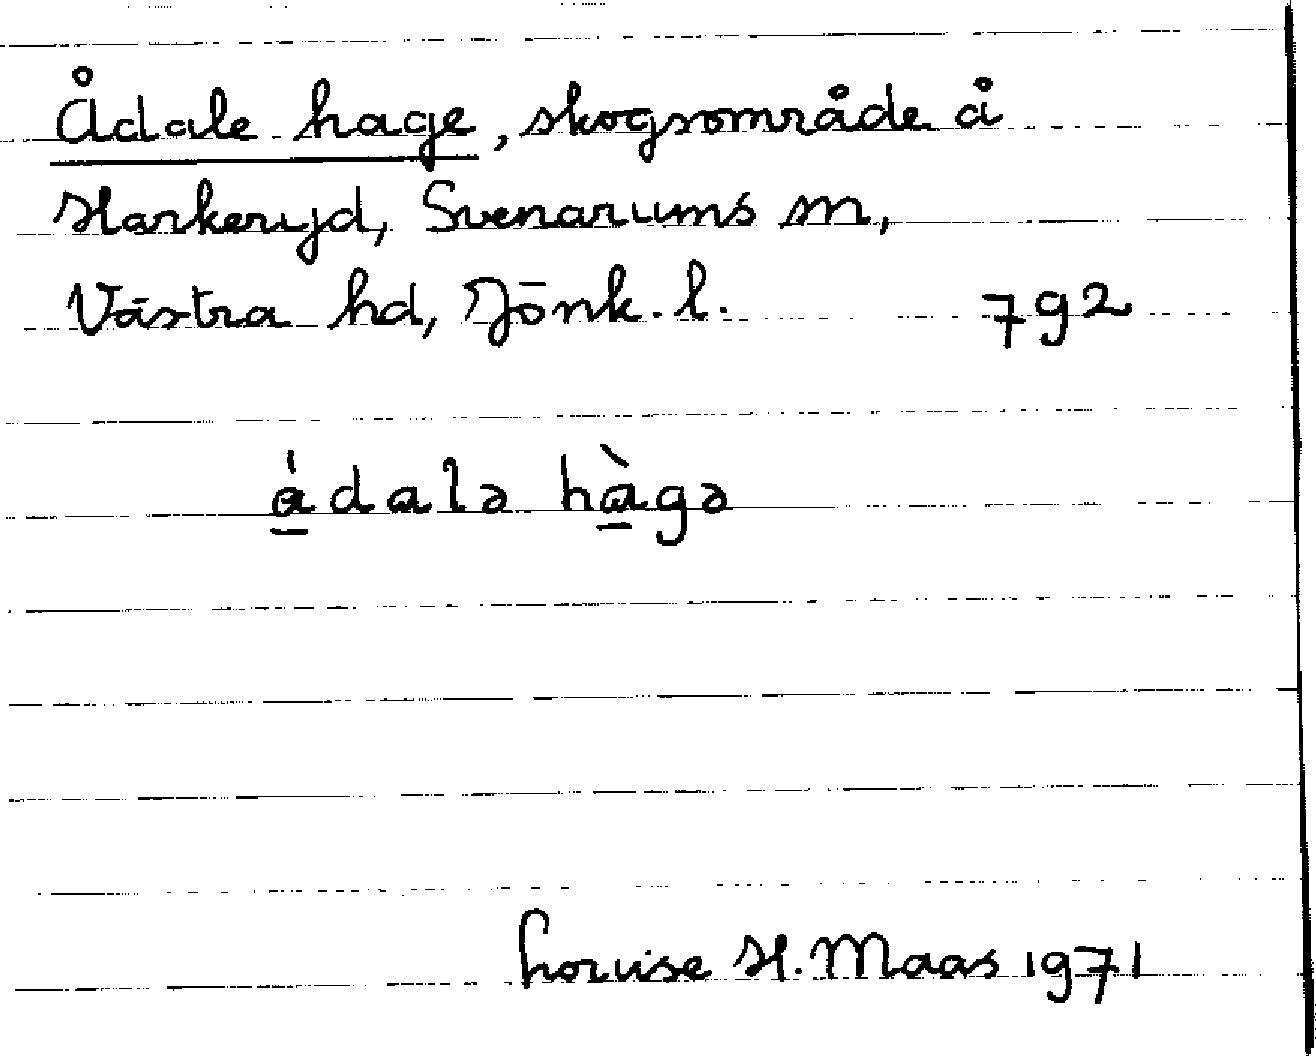 Ådale hage, skogsområde å
Harkeryd, Svenarums sn,
Västra hd, Jönk. l. 792
ádalə hàgə
Louise H. Maas 1971